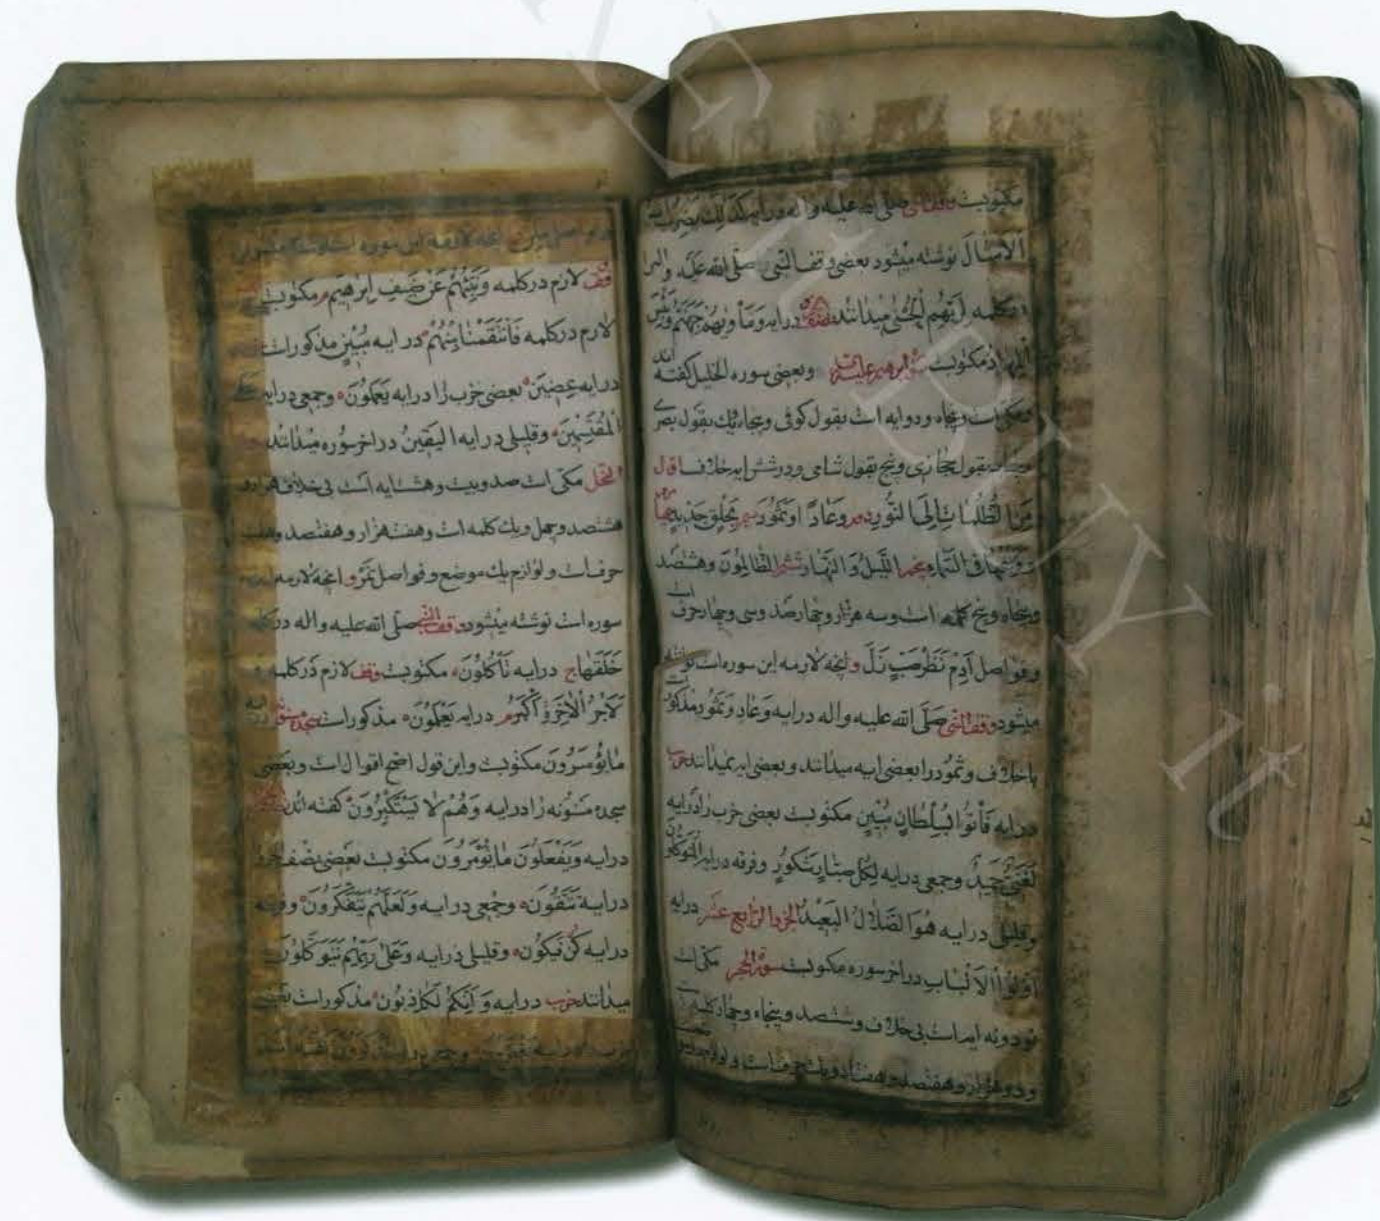 مکتوبست وقف النبی صلی الله علیه واله درایه کذلک یضرب الله
الامثال نوشته میشود بعضی وقف النبی صلی الله علیه واله
درکلمه لربهم الحسنی میدانند نصف درایه وماویهم جهنم وبئس
المهاد مکتوبست سوره ابرهیم علیه وبعضی سوره الخلیل کفته اند
ومکی است وپنجاه ودوایه است بقول کوفی وپنجاه ویک بقول بصری
بقول حجازی وپنج بقول شامی ودر شش ایه خلاف قال
من الظلمات الی النور وعاد وثمود بخلق جدید
وفرعها فی السماء اللیل والنهار الظالمون وهشتصد
وپنجاه وپنج کلمه است وسه هزار وچهارصد وسی وچهار حرف است
وفواصل ادم نظر صب ذل وانچه لازمه این سوره است نوشته
میشود وقف النبی صلی الله علیه واله درایه وعاد وثمود مذکور است
باخلاف وثمود را بعضی ایه میدانند وبعضی ایه نمیدانند حزب
درایه فأتونا بسلطان مبین مکتوبست بعضی حزب را درایه
لغنی حمید وجمعی درایه لکل صبار شکور وفرقه درایه المتوکلون
وقلیلی درایه هو الضلال البعید الجزو الرابع عشر درایه
اولوا الالباب در اخر سوره مکتوبست سورة الحجر مکی است
نود ونه ایه است بی خلاف وششصد وپنجاه وچهار کلمه است
ودو هزار وهفتصد وهفتاد ویک حرف است ولوازم
وفواصل انچه لازمه این سوره است نوشته میشود
وقف لازم درکلمه ونبئهم عن ضیف ابرهیم مکتوبست
لازم درکلمه فانتقمنا منهم درایه مبین مذکور است
درایه عضین بعضی حزب را درایه یعملون وجمعی درایه
المقتسمین وقلیلی درایه الیقین در اخر سوره میدانند
النحل مکی است صد وبیست وهشت ایه است بی خلاف هزار و
هشتصد وچهل ویک کلمه است وهفت هزار وهفتصد وهفت
حرف است ولوازم یک موضع وفواصل نمر وانچه لازمه این
سوره است نوشته میشود وقف النبی صلی الله علیه واله درکلمه
خلقها ج درایه تأکلون مکتوبست وقف لازم درکلمه
لاجر الاخرة اکبر م درایه یعلمون مذکور است سجده درایه
مایؤمرون مکتوبست واین قول اصح اقوال است وبعضی
سجده را درایه وهم لا یستکبرون کفته اند
درایه ویفعلون مایؤمرون مکتوبست بعضی نصف جزو
درایه تتقون وجمعی درایه ولعلهم یتفکرون وفرقه
درایه کن فیکون وقلیلی درایه وعلی ربهم یتوکلون
میدانند حزب درایه وانکم لکاذبون مذکور است بعضی